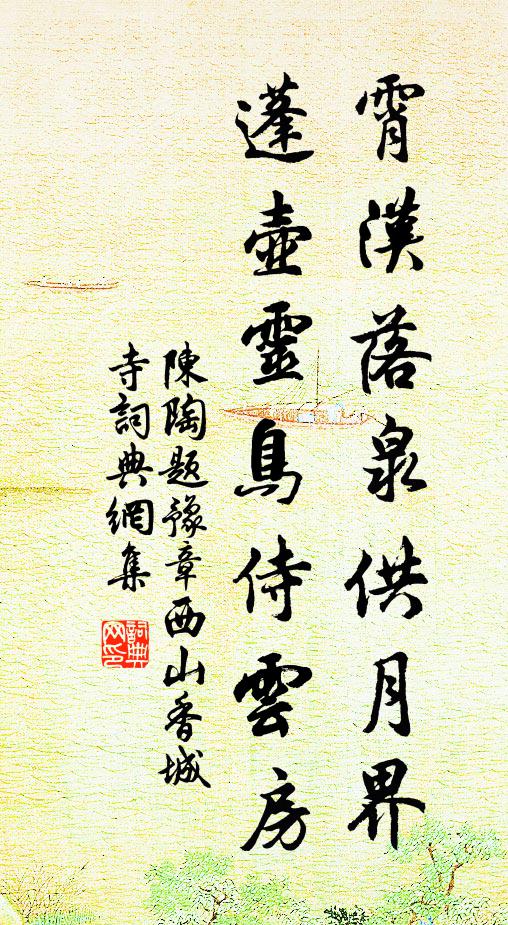 霄漢落泉供月界
蓬壺靈鳥侍雲房
陳陶題豫章西山香城
寺詞典網集
詞典網印